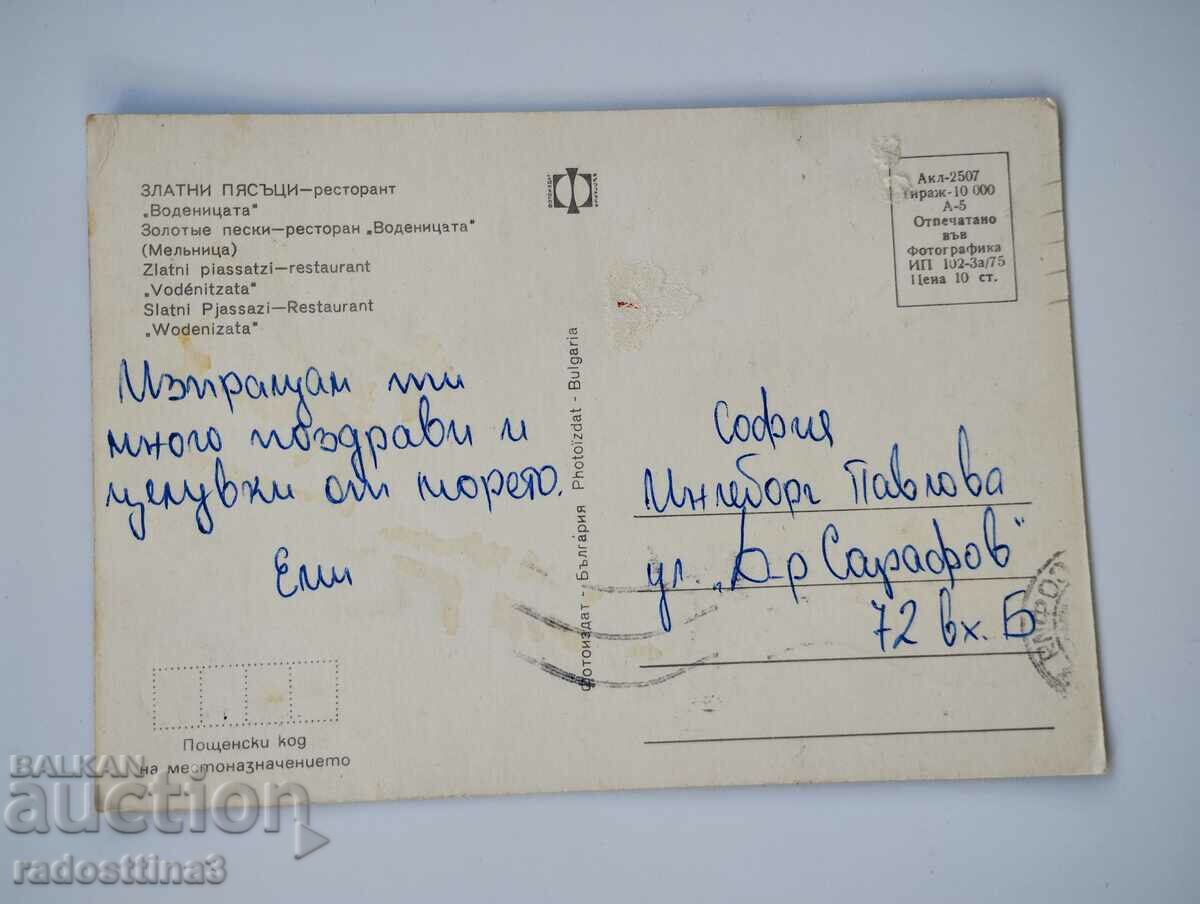 ЗЛАТНИ ПЯСЪЦИ—ресторант
„Воденицата“
Золотые пески—ресторан „Воденицата“
(Мельница)
Zlatni piassatzi—restaurant
„Vodénitzata“
Slatni Pjassazi—Restaurant
„Wodenizata“
Изпращам ти
много поздрави и
целувки от морето.
Еми
Пощенски код
на местоназначението
Фотоиздат - Бългáрия Photoïzdat - Bulgaria
Акл-2507
Тираж-10 000
А-5
Отпечатано
във
Фотографика
ИП 102-За/75
Цена 10 ст.
София
Ингеборг Павлова
ул. „Д-р Сарафов“
72 вх. Б
BALKAN
auction
radosttina3